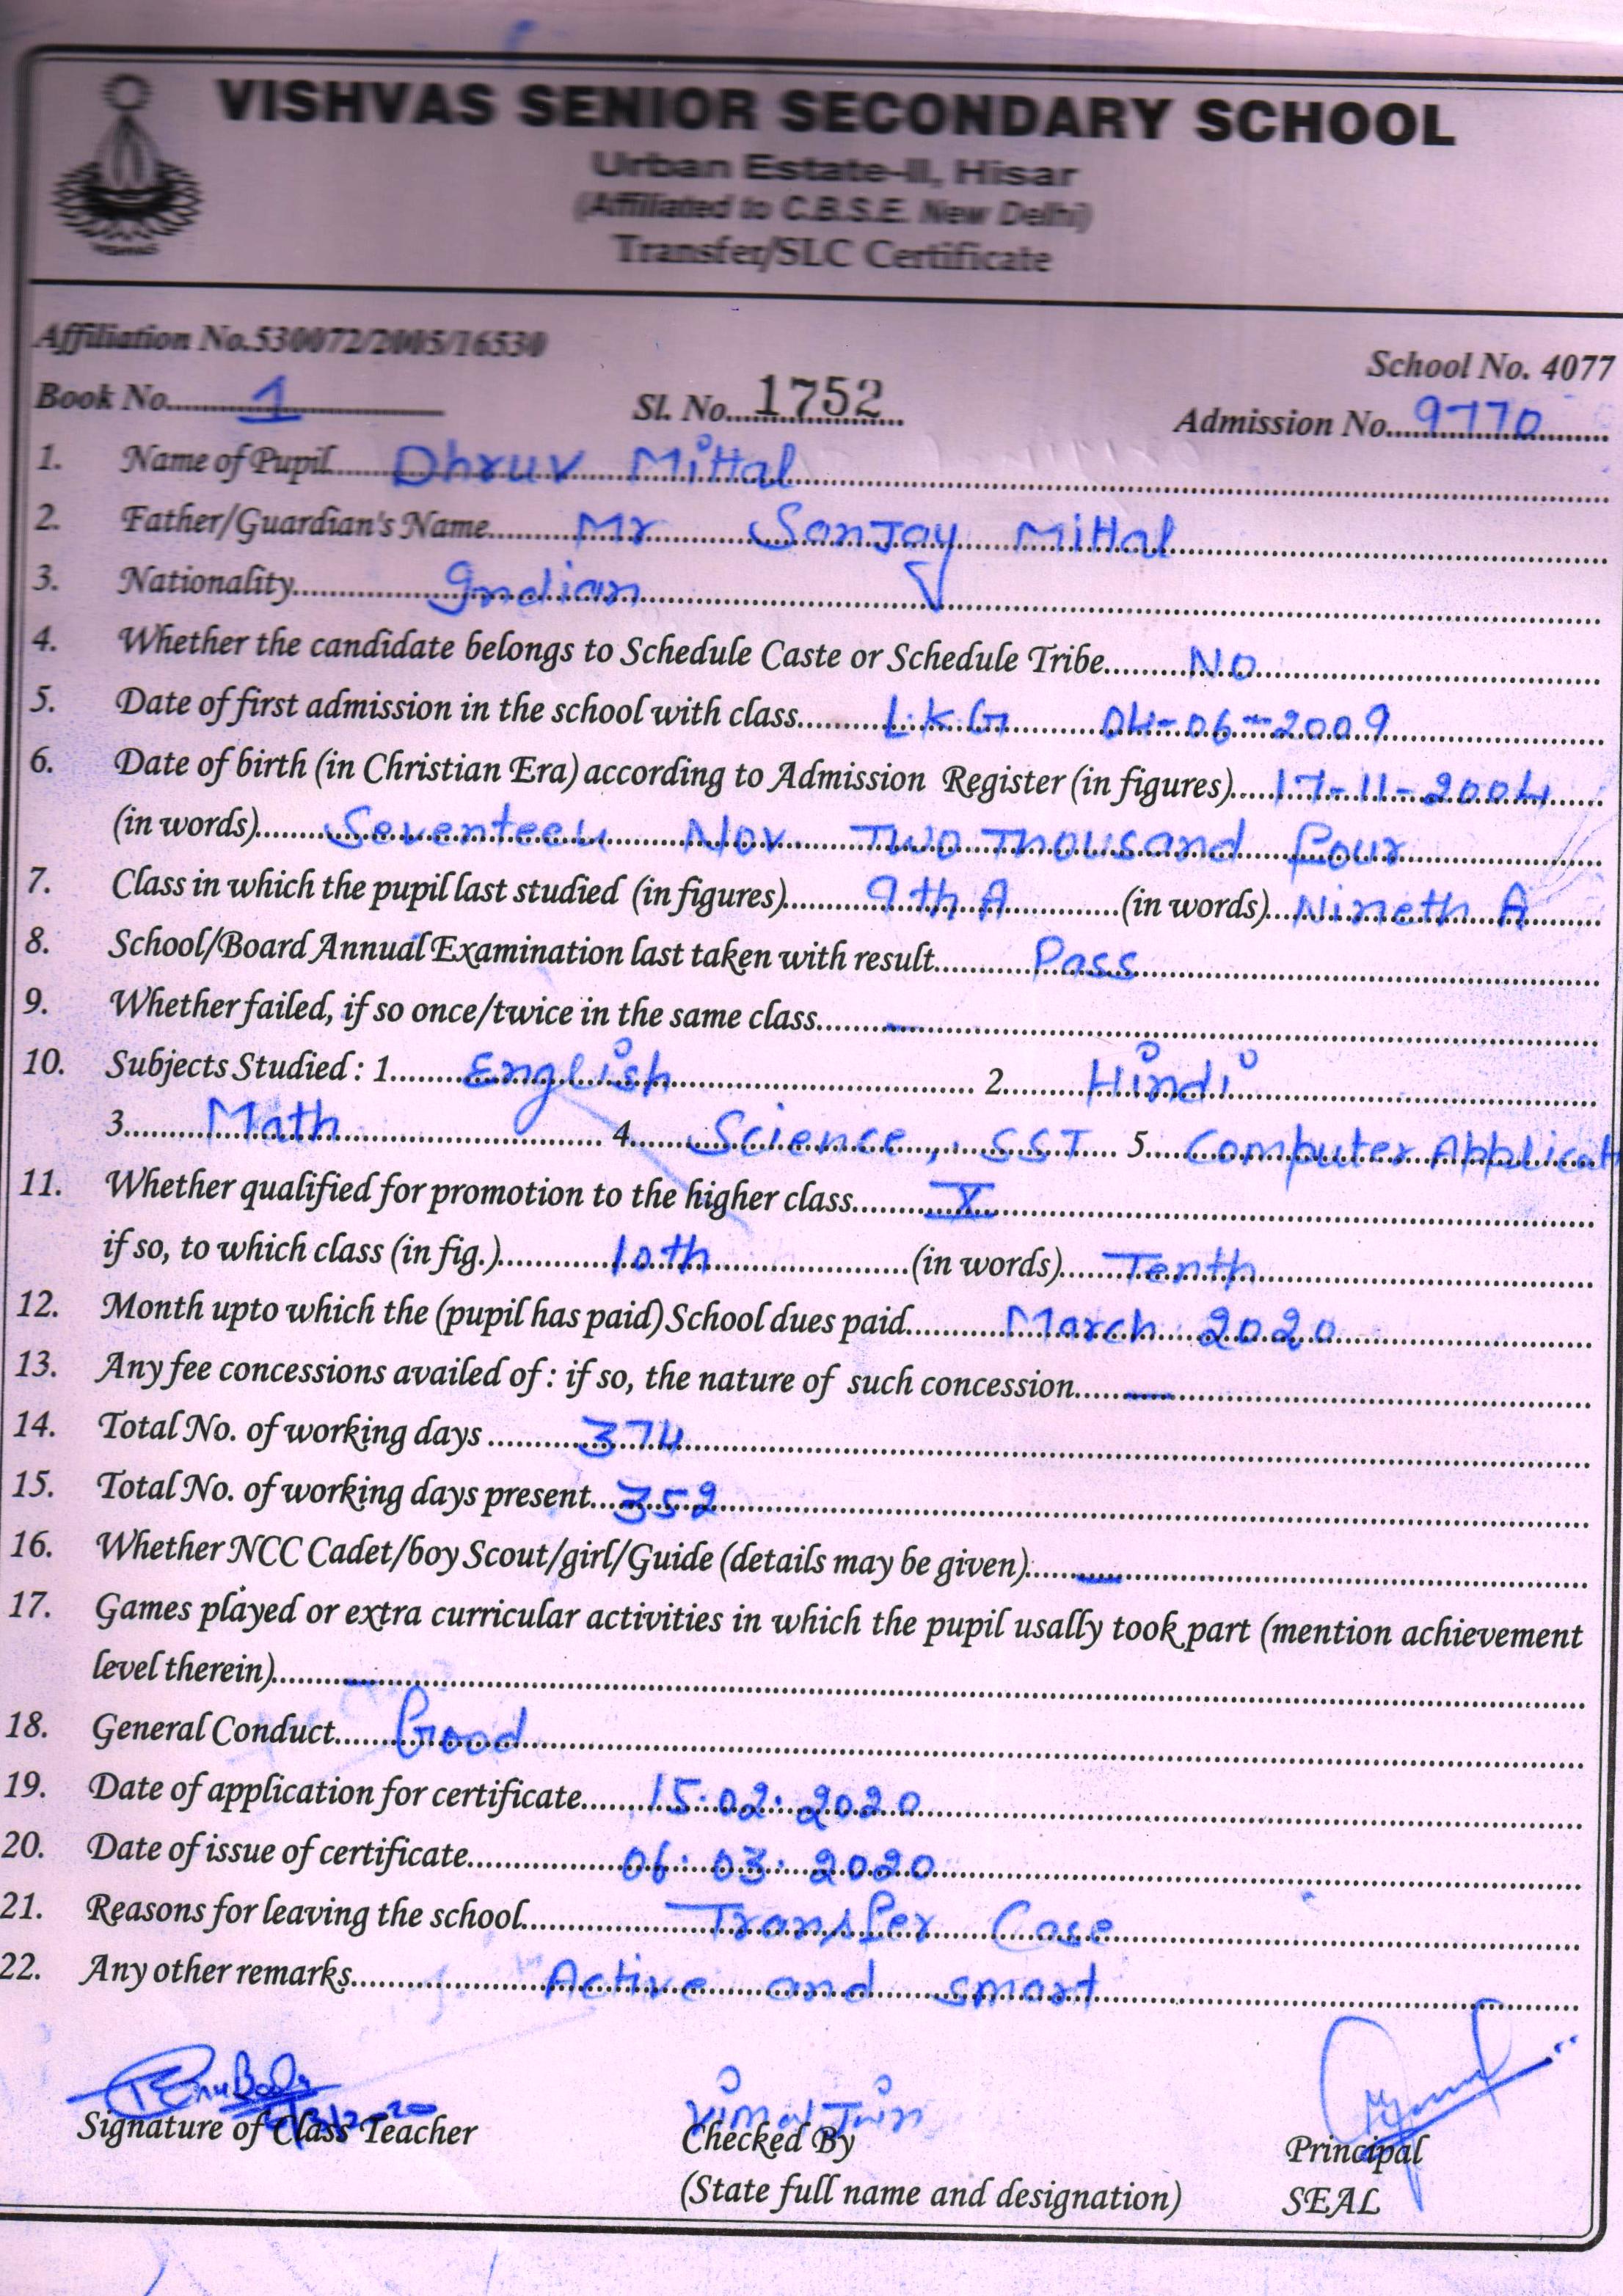 VISHVAS SENIOR SECONDARY SCHOOL
Urban Estate-II, Hisar
(Affiliated to C.B.S.E. New Delhi)
Transfer/SLC Certificate
VISHVAS
Affiliation No.530072/2005/16530
School No. 4077
Book No. 1 Sl. No. 1752 Admission No. 9770
1. Name of Pupil Dhruv Mittal
2. Father/Guardian's Name Mr Sanjay Mittal
3. Nationality Indian
4. Whether the candidate belongs to Schedule Caste or Schedule Tribe No
5. Date of first admission in the school with class L.K.G 04-06-2009
6. Date of birth (in Christian Era) according to Admission Register (in figures) 17-11-2004
(in words) Seventeen Nov Two Thousand Four
7. Class in which the pupil last studied (in figures) 9th A (in words) Nineth A
8. School/Board Annual Examination last taken with result Pass
9. Whether failed, if so once/twice in the same class —
10. Subjects Studied : 1. English 2. Hindi
3. Math 4. Science, SST 5. Computer Applicat
11. Whether qualified for promotion to the higher class X
if so, to which class (in fig.) 10th (in words) Tenth
12. Month upto which the (pupil has paid) School dues paid March 2020
13. Any fee concessions availed of : if so, the nature of such concession —
14. Total No. of working days 374
15. Total No. of working days present 352
16. Whether NCC Cadet/boy Scout/girl/Guide (details may be given) —
17. Games played or extra curricular activities in which the pupil usally took part (mention achievement
level therein) —
18. General Conduct Good
19. Date of application for certificate 15.02.2020
20. Date of issue of certificate 06.03.2020
21. Reasons for leaving the school Transfer Case
22. Any other remarks Active and smart
Vimal Jain
Signature of Class Teacher Checked By Principal
(State full name and designation) SEAL